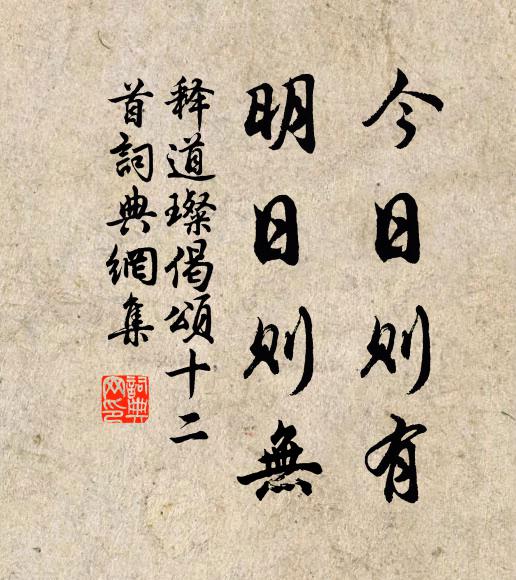 今日则有
明日则無
释道璨偈頌十二
首詞典網集
詞典
网印